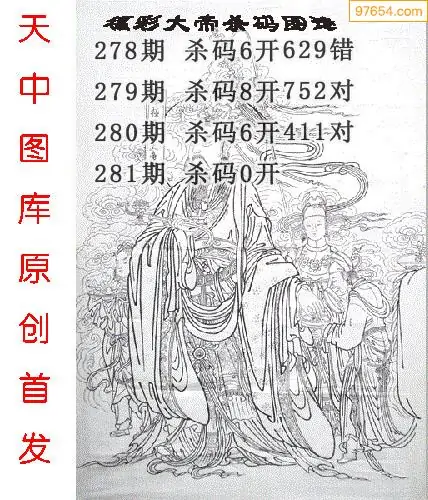 97654.com
福彩大帝杀码图
278期 杀码6开629错
279期 杀码8开752对
280期 杀码6开411对
281期 杀码0开
天中图库原创首发